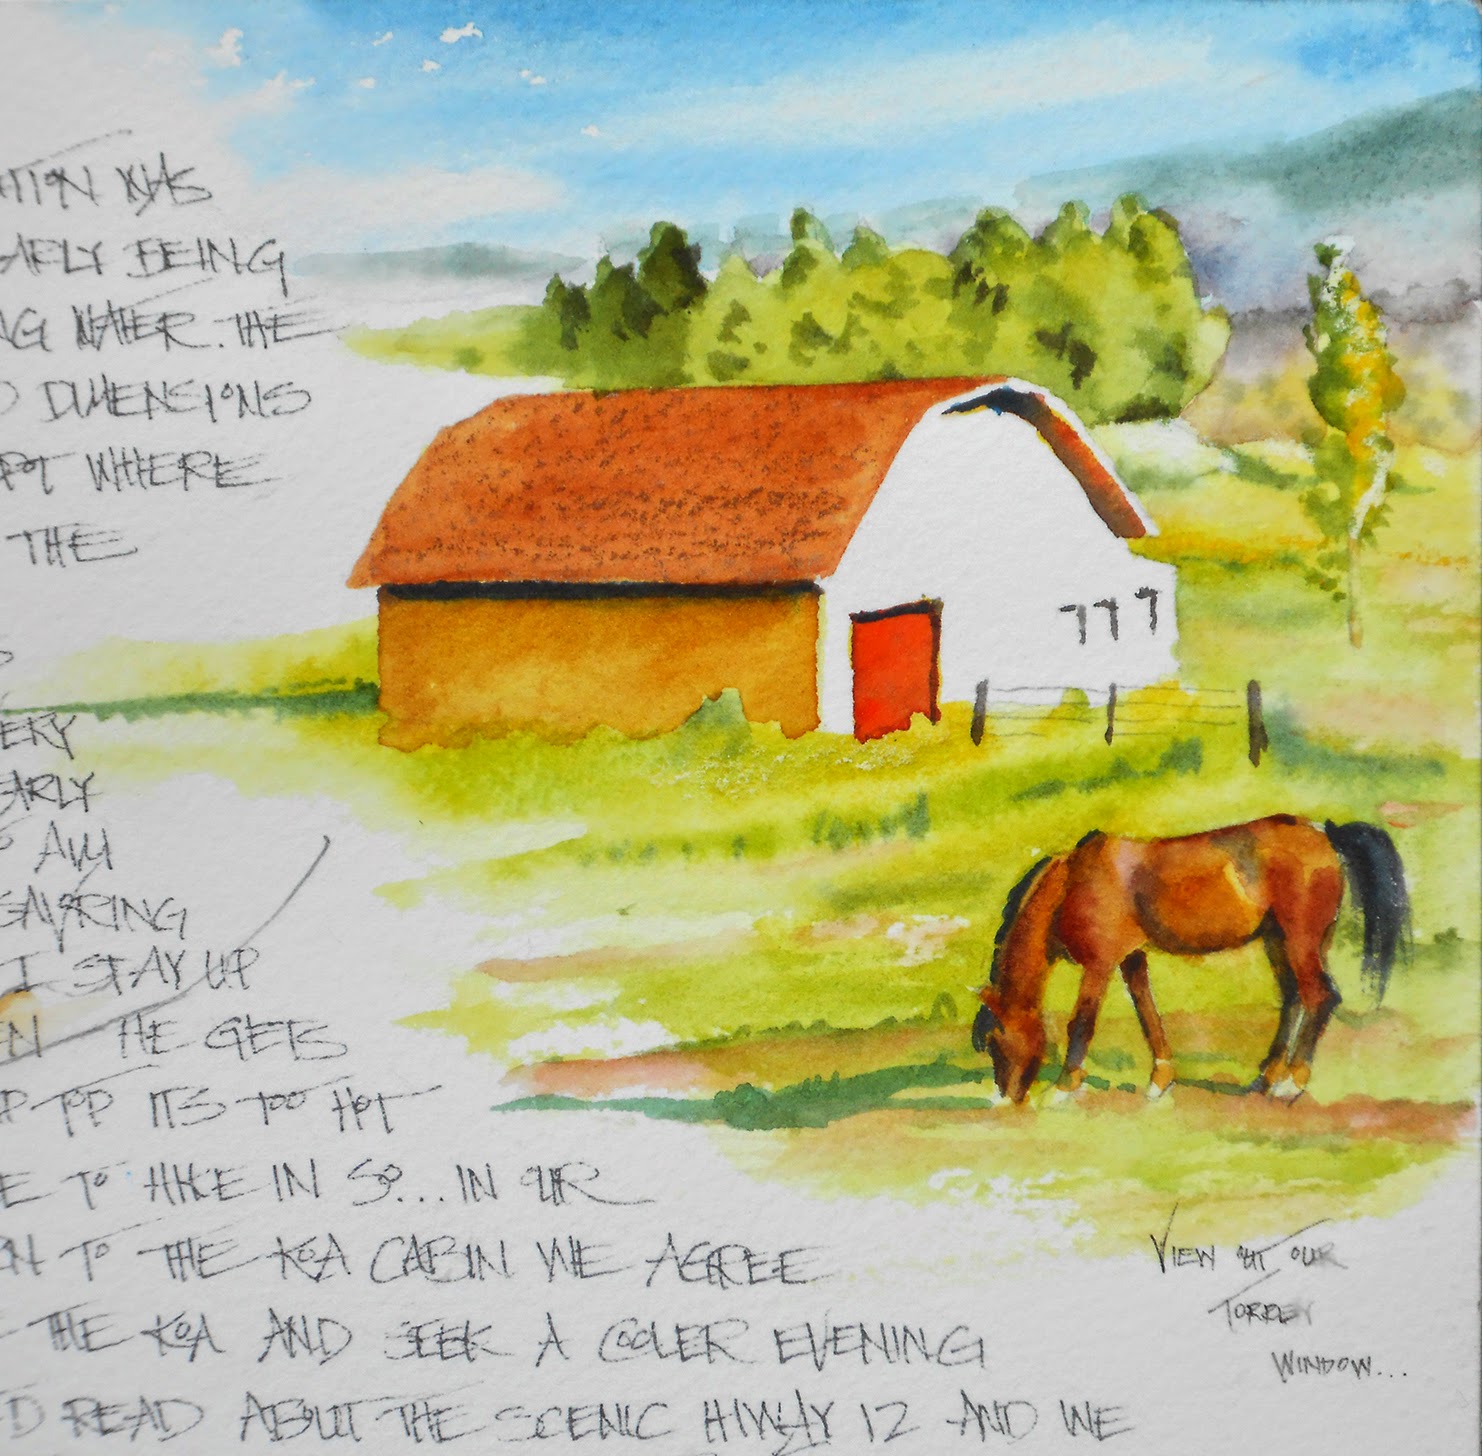 WAS
BEING
WATER. THE
DIMENSIONS
WHERE
THE
EARLY
AM
SAVORING
I STAY UP
HE GETS
UP TOP ITS TOO HOT
TO HIKE IN SO... IN OUR
TO THE KOA CABIN WE AGREE
THE KOA AND SEEK A COOLER EVENING
READ ABOUT THE SCENIC HIWAY 12 AND WE
VIEW OUT OUR
TORREY
WINDOW...